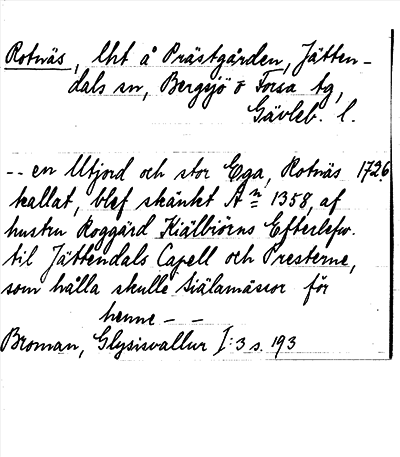 Rotnäs, lht å Prästgården, Jätten-
dals sn, Bergsjö o Forsa tg,
Gävleb. l.
-- en Utjord och stor Ega, Rotnäs 1726
kallat, blef skänkt An 1358, af
hustru Roggärd Kiälbiörns Efterlefw.
til Jättendals Capell och Presterne,
som hålla skulle siälamässor för
henne - -
Broman, Glysisvallur I:3 s. 193